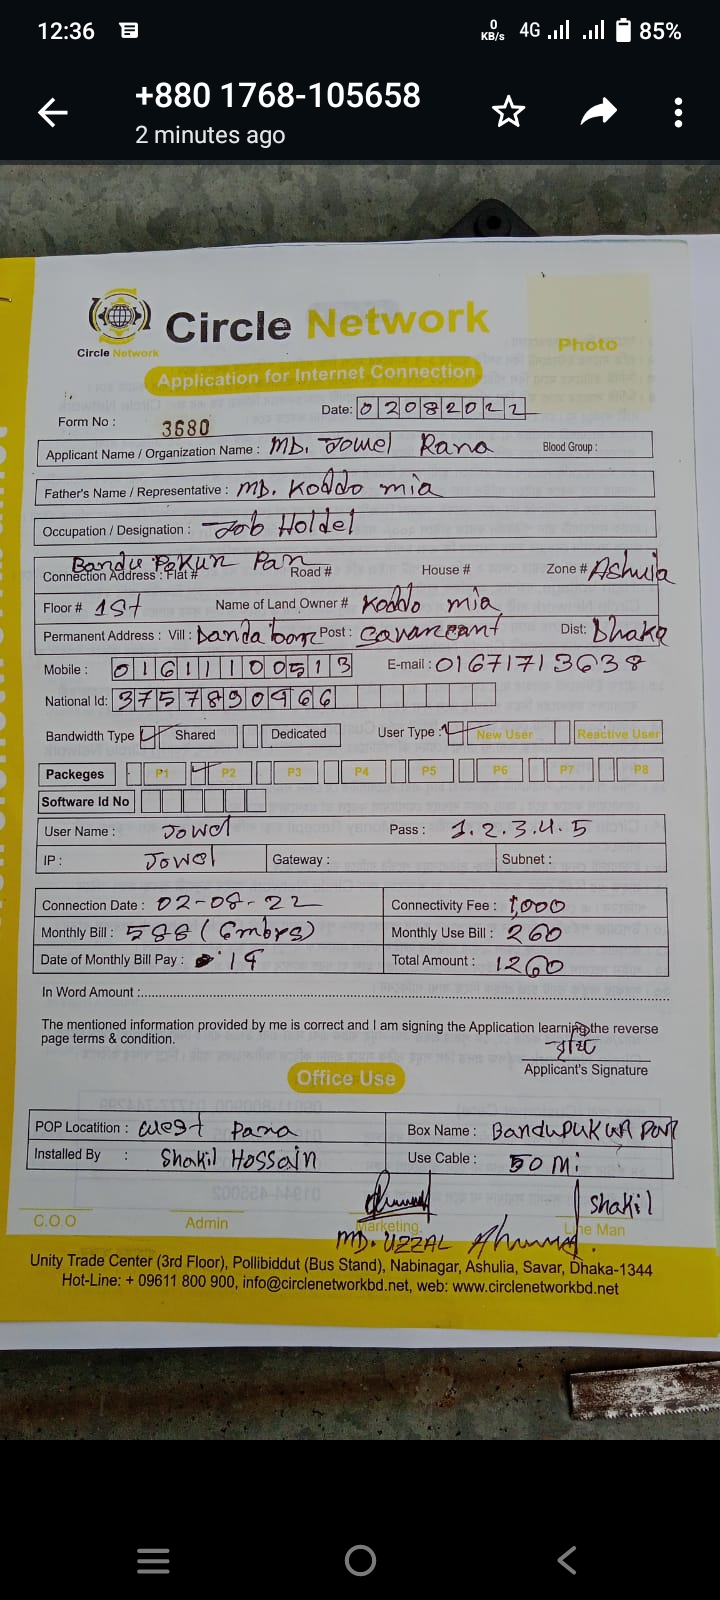 12:36 0 KB/s 4G 85%
+880 1768-105658
2 minutes ago
Circle Network
Circle Network
Photo
Application for Internet Connection
Date: 02082022
Form No : 3680
Applicant Name / Organization Name : MD. Jowel Rana Blood Group :
Father's Name / Representative : MD. Koddo mia
Occupation / Designation : Job Holdel
Bandu Pokur Par
Connection Address : Flat # Road # House # Zone # Ashulia
Floor # 1st Name of Land Owner # Koddo mia
Permanent Address : Vill : Post : Dist: Dhaka
Mobile : 01611100513 E-mail : 01671713638
National Id: 3757890966
Bandwidth Type Shared Dedicated User Type : New User Reactive User
Packeges P1 P2 P3 P4 P5 P6 P7 P8
Software Id No
User Name : Jowel Pass : 1.2.3.4.5
IP : Jowel Gateway : Subnet :
Connection Date : 02-08-22 Connectivity Fee : 1,000
Monthly Bill : 588 (6mbps) Monthly Use Bill : 260
Date of Monthly Bill Pay : Total Amount : 1260
In Word Amount :
The mentioned information provided by me is correct and I am signing the Application learning the reverse
page terms & condition.
Applicant's Signature
Office Use
POP Locatition : west para Box Name : Bandupukur Par
Installed By : Shakil Hossain Use Cable : 50 Mi
Shakil
C.O.O Admin Marketing. Line Man
MD. UZZAL Ahmmed.
Unity Trade Center (3rd Floor), Pollibiddut (Bus Stand), Nabinagar, Ashulia, Savar, Dhaka-1344
Hot-Line: + 09611 800 900, info@circlenetworkbd.net, web: www.circlenetworkbd.net